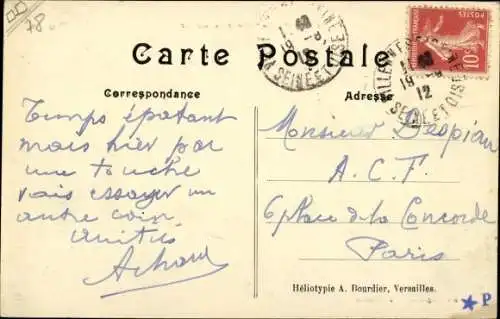 78
Carte Postale
Correspondance
Adresse
Temps épatant
mais hier pas
une touche
vais essayer un
autre coin
Amitiés
Achard
POSTES
10
19
12
SEINE ET OISE
Monsieur Despian
A.C.F.
6 place de la Concorde
Paris
Héliotypie A. Bourdier, Versailles.
P